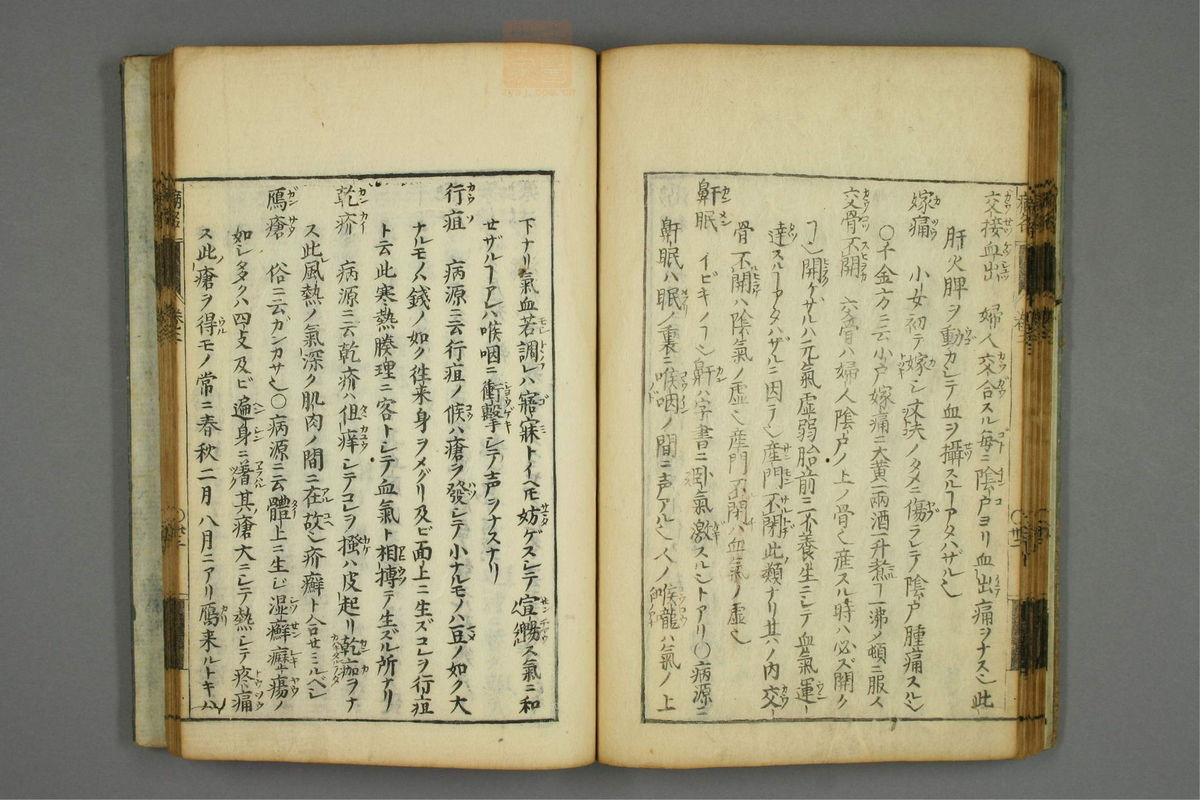 交接血出　婦人交合スル毎ニ陰戸ヨリ血出痛ヲナス乄此
肝火脾ヲ動カシテ血ヲ攝スルヿアタハザル乄
嫁痛　小女初テ嫁シ丈夫ノタメニ傷ラレテ陰戸腫痛スル乄
〇千金方ニ云小戸嫁痛ニ大黄二両酒一升煮一沸ノ頓ニ服ス
交骨不開　交骨ハ婦人陰戸ノ上ノ骨乄産スル時ハ必ズ開ク
ヿ乄開ケザルハ元氣虚弱胎前ニ不養生ニシテ血氣運
達スルヿアタハザルニ因テ乄産門不閉此類ナリ其ノ内交
骨不開ハ陰氣ノ虚乄産門不閉ハ血氣ノ虚乄
鼾眠　イビキノヿ乄鼾ハ字書ニ卧氣激スル乄トアリ〇病源ニ
鼾眠ハ眠ノ裏ニ喉咽ノ間ニ声アル乄人ノ喉龍ハ氣ノ上
下ナリ氣血若調レハ寤寐トイヘモ妨ゲズシテ宣暢ス氣ニ和
セザルヿアレハ喉咽ニ衝擊シテ声ヲナスナリ
行疽　病源ニ云行疽ノ候ハ瘡ヲ發シテ小ナルモノハ豆ノ如ク大
ナルモノハ錢ノ如ク往来身ヲメグリ及ビ面上ニ生ズコレヲ行疽
ト云此寒熱腠理ニ客トシテ血氣ト相搏テ生ズル所ナリ
乾疥　病源ニ云乾疥ハ但痒シテコレヲ搔ハ皮起リ乾痂ヲナ
ス此風熱ノ氣深ク肌肉ノ間ニ在故乄疥癬ト合セミルベシ
鴈瘡　俗ニ云ガンカサ乄〇病源ニ云體上ニ生ジ湿癬癧瘍ノ
如シ多クハ四支及ビ遍身ニ著其瘡大ニシテ熱シテ疼痛
ス此瘡ヲ得モノ常ニ春秋二月八月ニアリ鴈来ルトキハ